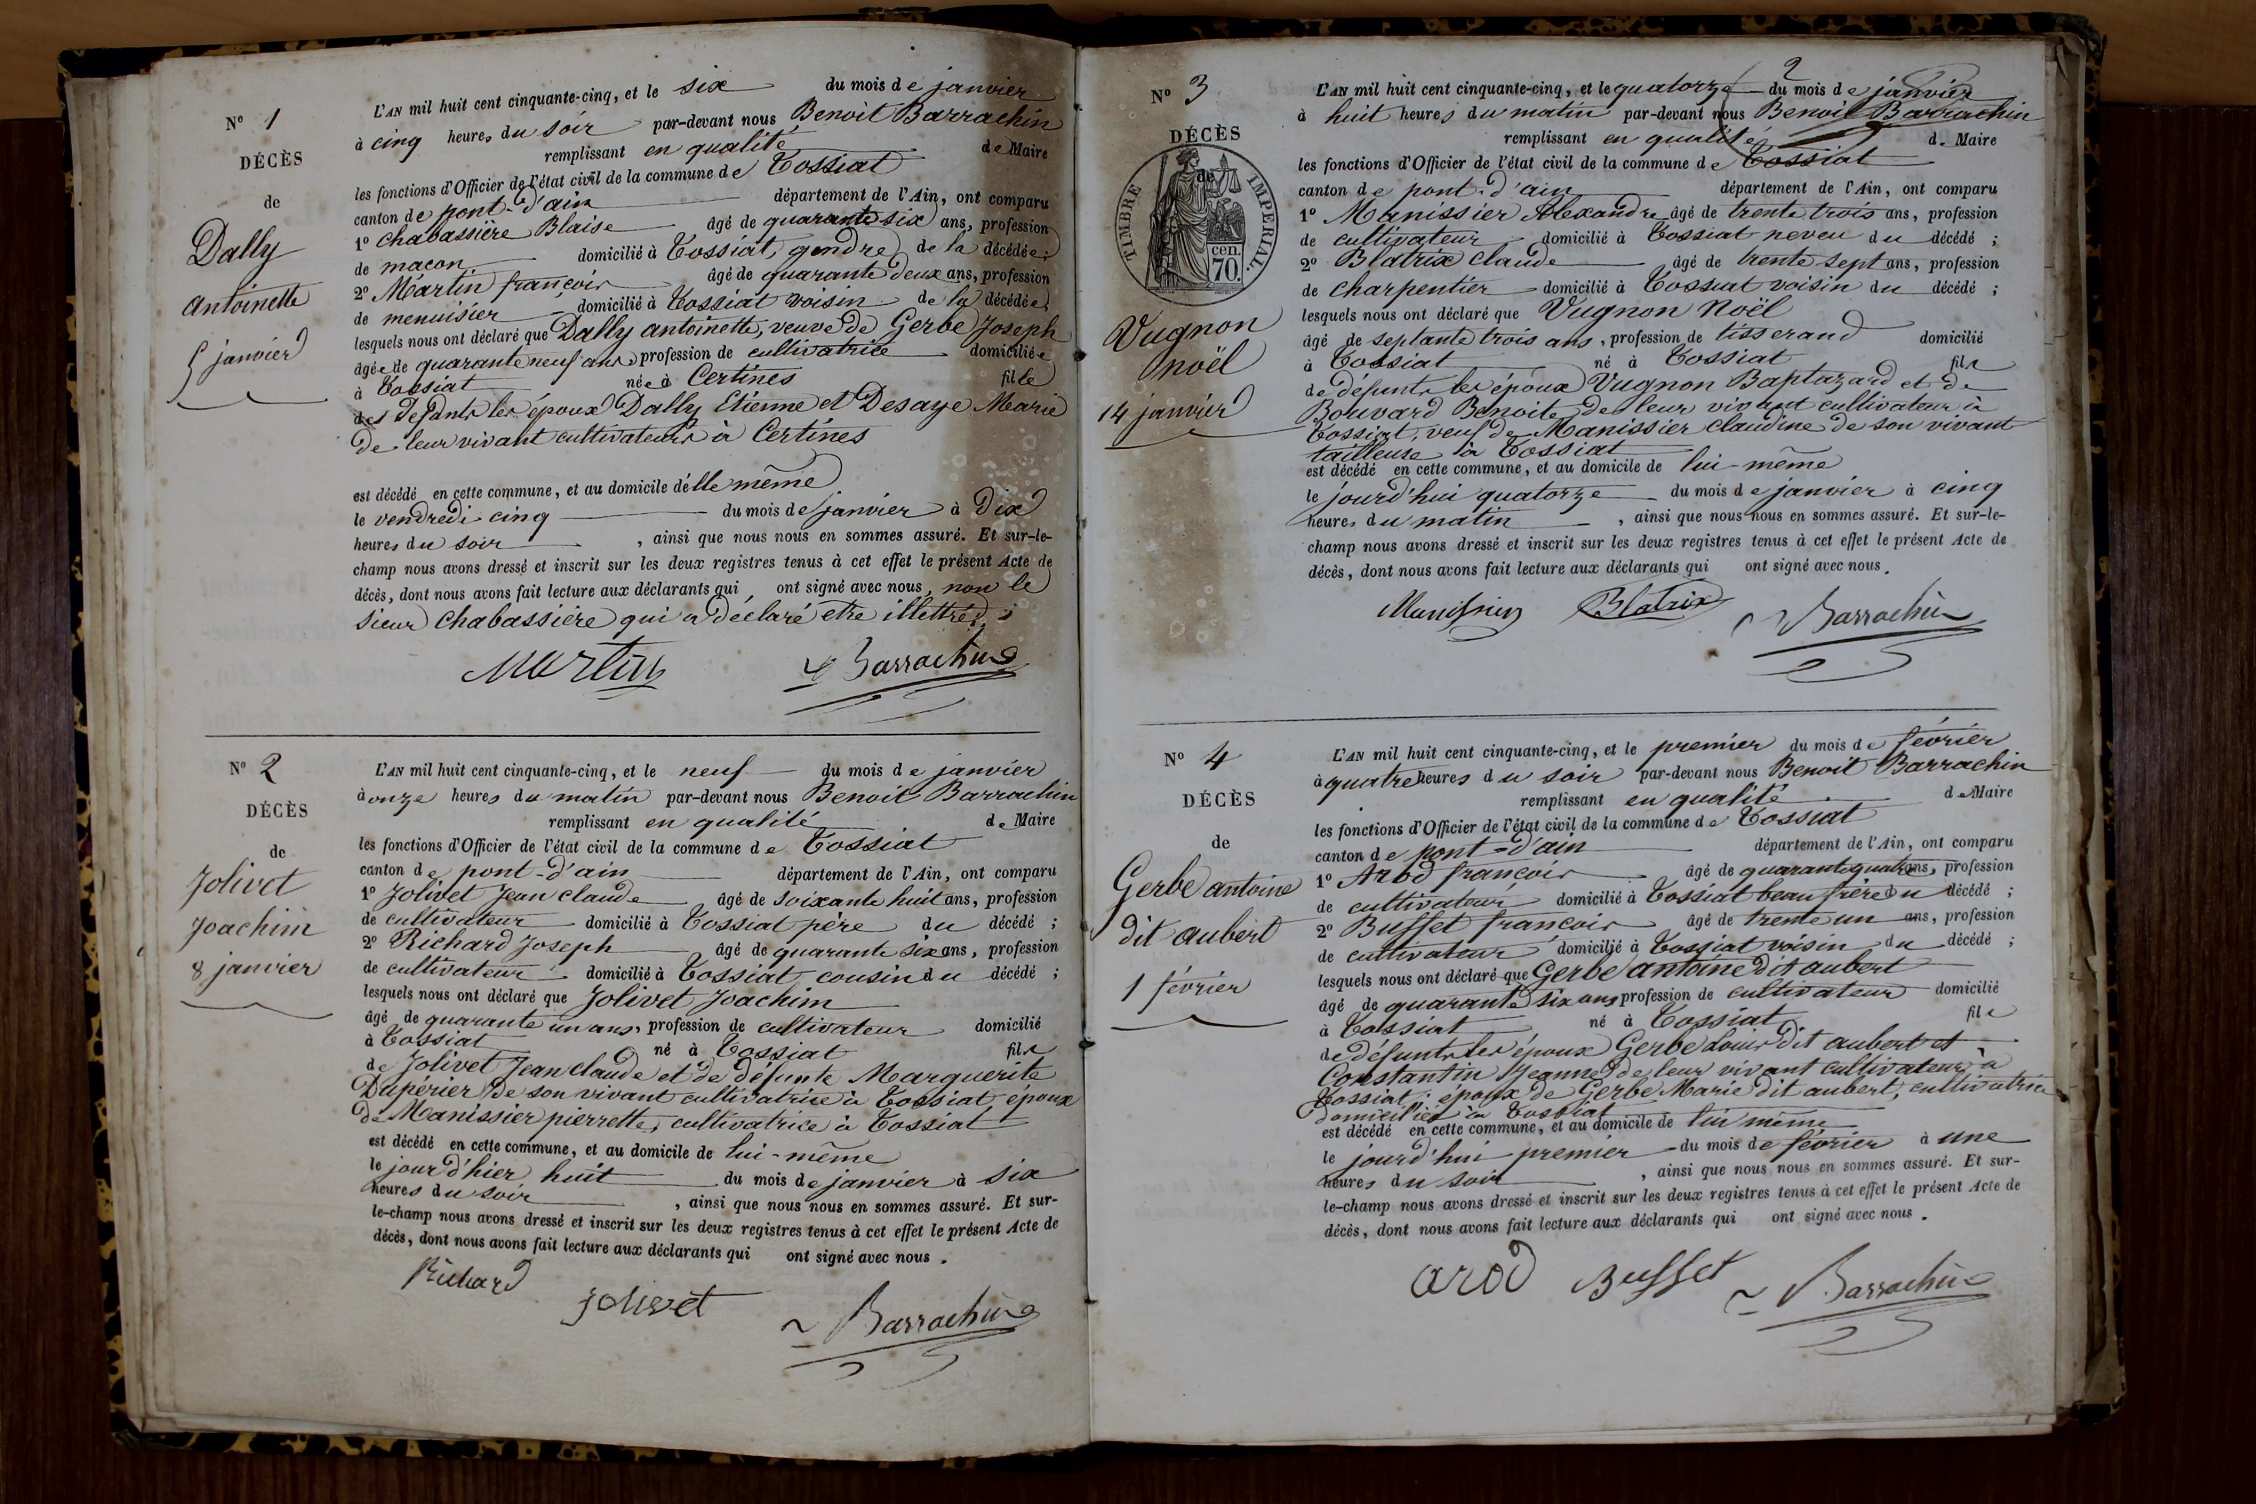 N° 1
DÉCÈS
de
Dally
antoinette
5 janvier
L'AN mil huit cent cinquante-cinq, et le six du mois de janvier
à cinq heures du soir par-devant nous Benoit Barrachin
remplissant en qualité de Maire
les fonctions d'Officier de l'état civil de la commune de Tossiat
canton de pont-d'ain département de l'Ain, ont comparu
1° Chabassière Blaise âgé de quarante six ans, profession
de maçon domicilié à Tossiat, gendre de la décédée;
2° Martin françois âgé de quarante deux ans, profession
de menuisier domicilié à Tossiat voisin de la décédée
lesquels nous ont déclaré que Dally antoinette, veuve de Gerbe Joseph
âgée de quarante neuf ans profession de cultivatrice domiciliée
à Tossiat née à Certines fille
des défunts les époux Dally Etienne et Desaye Marie
de leur vivant cultivateurs à Certines
est décédé en cette commune, et au domicile d'elle même
le vendredi cinq du mois de janvier à Dix
heures du soir, ainsi que nous nous en sommes assuré. Et sur-le-
champ nous avons dressé et inscrit sur les deux registres tenus à cet effet le présent Acte de
décès, dont nous avons fait lecture aux déclarants qui ont signé avec nous, non le
sieur Chabassière qui a déclaré etre illettré.
Martin Barrachin
N° 2
DÉCÈS
de
Jolivet
Joachim
8 janvier
L'AN mil huit cent cinquante-cinq, et le neuf du mois de janvier
à onze heures du matin par-devant nous Benoit Barrachin
remplissant en qualité de Maire
les fonctions d'Officier de l'état civil de la commune de Tossiat
canton de pont-d'ain département de l'Ain, ont comparu
1° Jolivet Jean claude âgé de soixante huit ans, profession
de cultivateur domicilié à Tossiat père du décédé ;
2° Richard Joseph âgé de quarante six ans, profession
de cultivateur domicilié à Tossiat cousin du décédé ;
lesquels nous ont déclaré que Jolivet Joachim
âgé de quarante un ans, profession de cultivateur domicilié
à Tossiat né à Tossiat fils
de Jolivet Jean claude et de défunte Marguerite
Dupérier de son vivant cultivatrice à Tossiat époux
de Manissier pierrette, cultivatrice à Tossiat
est décédé en cette commune, et au domicile de lui-même
le jour d'hier huit du mois de janvier à six
heures du soir, ainsi que nous nous en sommes assuré. Et sur-
le-champ nous avons dressé et inscrit sur les deux registres tenus à cet effet le présent Acte de
décès, dont nous avons fait lecture aux déclarants qui ont signé avec nous.
Richard Jolivet Barrachin
2
N° 3
DÉCÈS
de
TIMBRE IMPERIAL.
cen. 70.
Vugnon
noël
14 janvier
L'AN mil huit cent cinquante-cinq, et le quatorze du mois de janvier
à huit heures du matin par-devant nous Benoit Barrachin
remplissant en qualité de Maire
les fonctions d'Officier de l'état civil de la commune de Tossiat
canton de pont-d'ain département de l'Ain, ont comparu
1° Manissier Alexandre âgé de trente trois ans, profession
de cultivateur domicilié à Tossiat neveu du décédé ;
2° Blatrix claude âgé de trente sept ans, profession
de charpentier domicilié à Tossiat voisin du décédé ;
lesquels nous ont déclaré que Vugnon Noël
âgé de septante trois ans, profession de tisserand domicilié
à Tossiat né à Tossiat fils
de défunts les époux Vugnon Baptazard et de
Bouvard Benoite, de leur vivant cultivateur à
Tossiat, veuf de Manissier claudine de son vivant
tailleuse à Tossiat
est décédé en cette commune, et au domicile de lui-même
le jourd'hui quatorze du mois de janvier à cinq
heures du matin, ainsi que nous nous en sommes assuré. Et sur-le-
champ nous avons dressé et inscrit sur les deux registres tenus à cet effet le présent Acte de
décès, dont nous avons fait lecture aux déclarants qui ont signé avec nous.
Manissier Blatrix Barrachin
N° 4
DÉCÈS
de
Gerbe antoine
dit aubert
1 février
L'AN mil huit cent cinquante-cinq, et le premier du mois de février
à quatre heures du soir par-devant nous Benoit Barrachin
remplissant en qualité de Maire
les fonctions d'Officier de l'état civil de la commune de Tossiat
canton de pont-d'ain département de l'Ain, ont comparu
1° Arod françois âgé de quarante quatre ans, profession
de cultivateur domicilié à Tossiat beau frère du décédé ;
2° Buffet françois âgé de trente un ans, profession
de cultivateur domicilié à Tossiat voisin du décédé ;
lesquels nous ont déclaré que Gerbe antoine dit aubert
âgé de quarante six ans profession de cultivateur domicilié
à Tossiat né à Tossiat fils
de défunts les époux Gerbe Louis dit aubert et
Constantin Jeanne de leur vivant cultivateur à
Tossiat ; époux de Gerbe Marie dit aubert, cultivatrice
domiciliée à Tossiat
est décédé en cette commune, et au domicile de lui même
le jourd'hui premier du mois de février à une
heures du soir, ainsi que nous nous en sommes assuré. Et sur-
le-champ nous avons dressé et inscrit sur les deux registres tenus à cet effet le présent Acte de
décès, dont nous avons fait lecture aux déclarants qui ont signé avec nous.
arod Buffet Barrachin